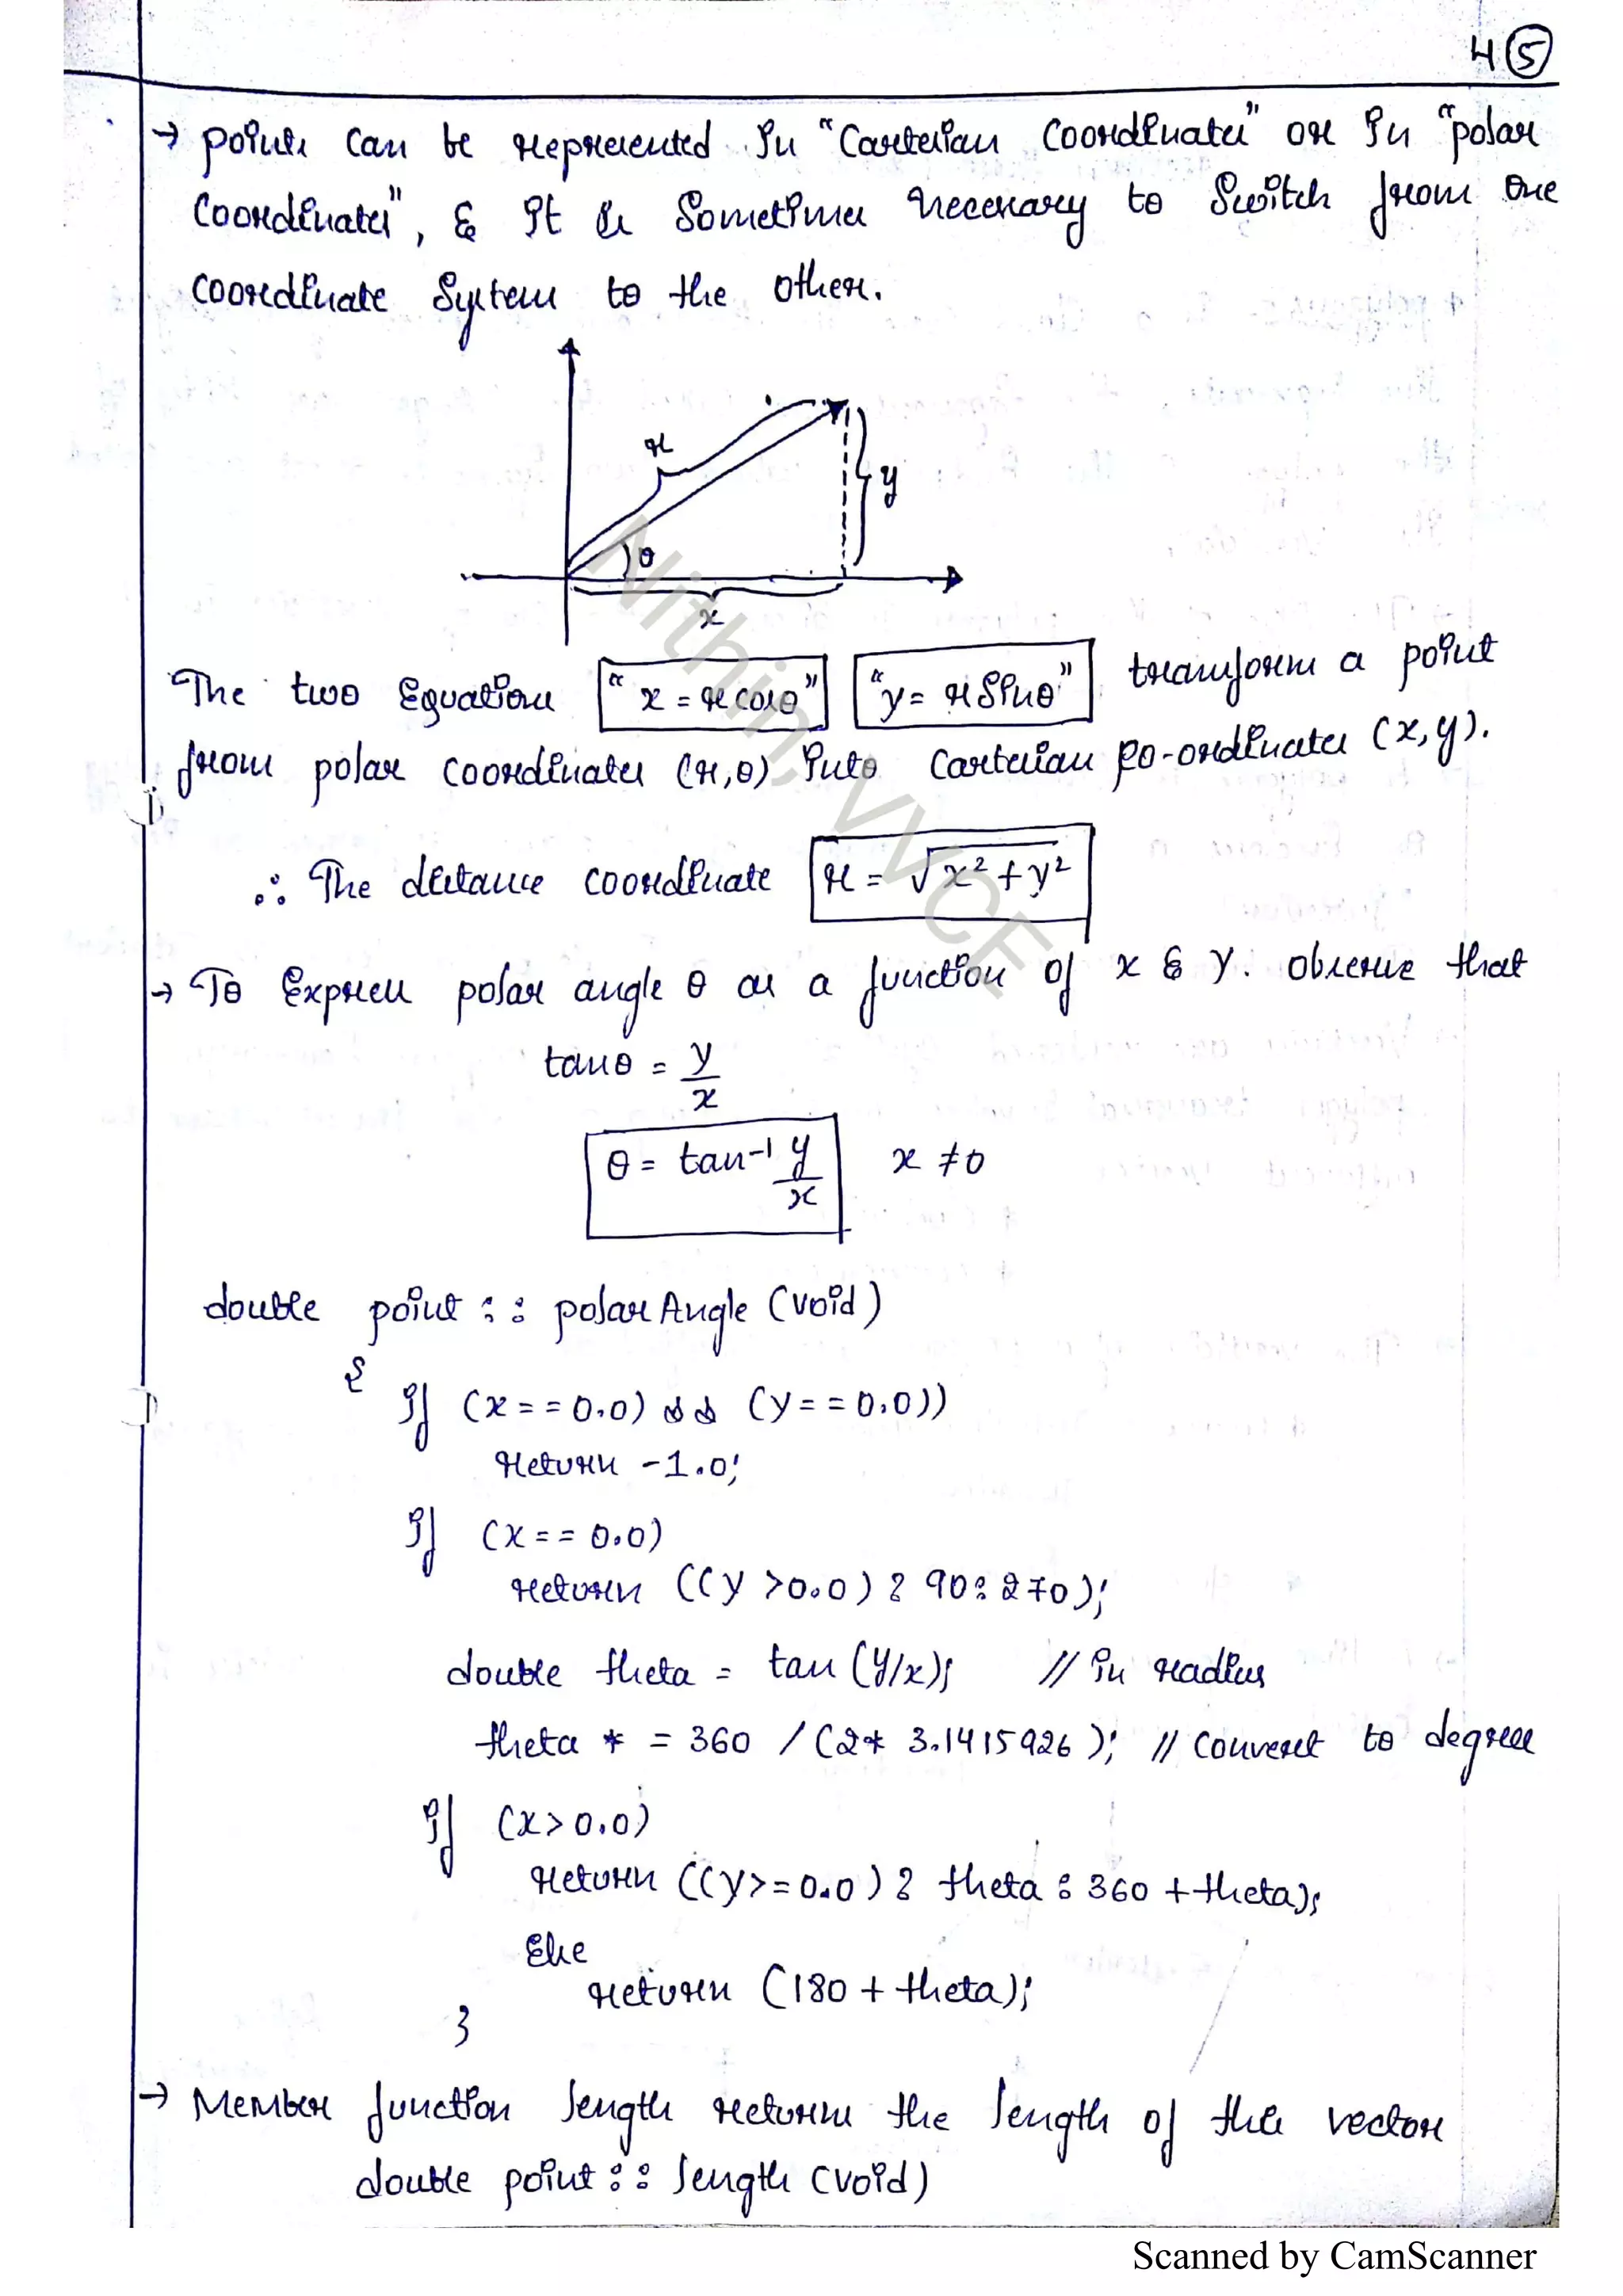 4 5
→ points can be represented in "Cartesian Coordinates" or in "polar
Coordinates", & it is Sometimes necessary to Switch from one
coordinate System to the other.
r
y
θ
x
The two Equations "x = r cosθ" "y = r Sinθ" transform a point
from polar coordinates (r,θ) into Cartesian co-ordinates (x,y).
∴ The distance coordinate r = √x²+y²
→ To Express polar angle θ as a function of x & y. observe that
tanθ = y/x
θ = tan⁻¹ y/x x ≠ 0
double point :: polarAngle (void)
{
if (x == 0.0) && (y == 0.0))
return -1.0;
if (x == 0.0)
return ((y > 0.0) ? 90 : 270);
double theta = tan (y/x); // in radius
theta * = 360 / (2* 3.1415926); // convert to degree
if (x > 0.0)
return ((y >= 0.0) ? theta : 360 + theta);
Else
return (180 + theta);
}
→ Member function length returns the length of the vector
double point :: length (void)
Nithin, VVCE
Scanned by CamScanner